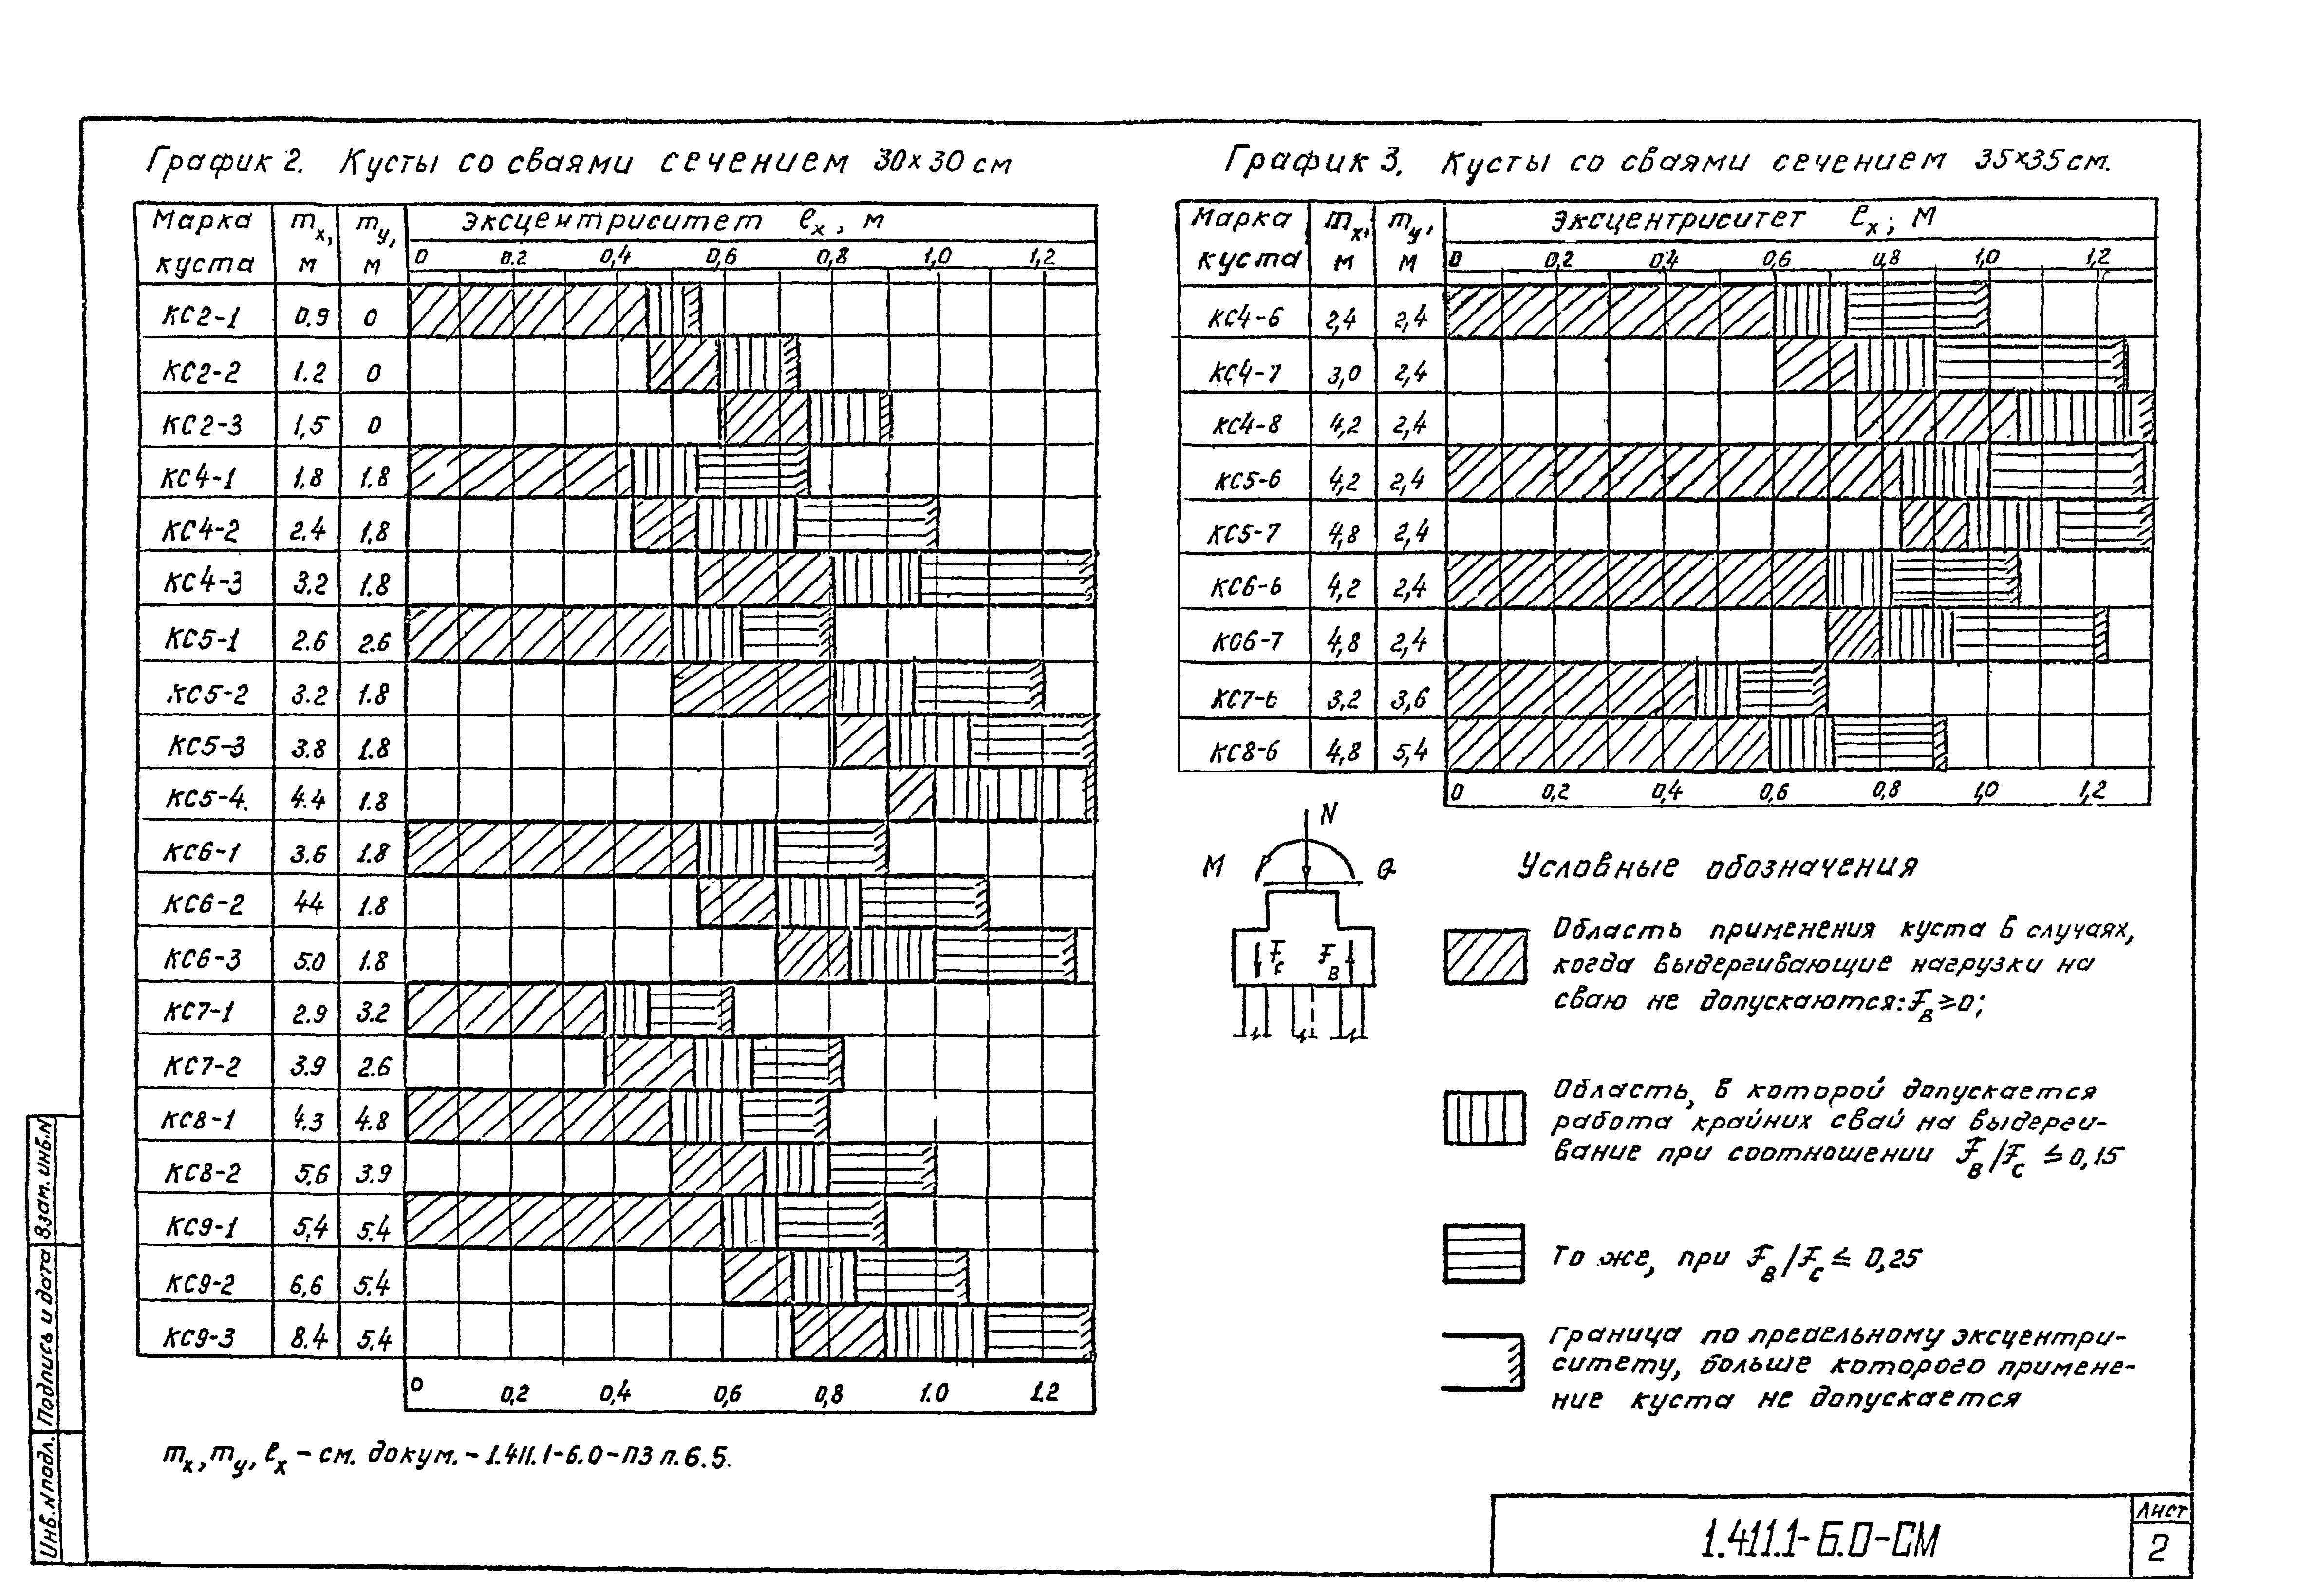 График 2. Кусты со сваями сечением 30×30 см
Марка куста mx, м my, м Эксцентриситет ex, м
0 0.2 0,4 0,6 0,8 1,0 1,2
КС2-1 0.9 0
КС2-2 1.2 0
КС2-3 1,5 0
КС4-1 1,8 1.8
КС4-2 2.4 1,8
КС4-3 3.2 1.8
КС5-1 2.6 2.6
КС5-2 3.2 1.8
КС5-3 3.8 1.8
КС5-4. 4.4 1.8
КС6-1 3.6 1.8
КС6-2 44 1.8
КС6-3 5.0 1.8
КС7-1 2.9 3.2
КС7-2 3.9 2.6
КС8-1 4.3 4.8
КС8-2 5,6 3.9
КС9-1 5,4 5.4
КС9-2 6,6 5.4
КС9-3 8.4 5.4
0 0,2 0,4 0,6 0,8 1.0 1.2
mx, my, ex – см. докум. – 1.411.1-6.0-ПЗ п.6.5.
График 3. Кусты со сваями сечением 35×35 см.
Марка куста mx, м my, м Эксцентриситет ex; м
0 0,2 0,4 0,6 0,8 1,0 1,2
КС4-6 2,4 2,4
КС4-7 3,0 2,4
КС4-8 4,2 2,4
КС5-6 4,2 2,4
КС5-7 4,8 2,4
КС6-6 4,2 2,4
КС6-7 4,8 2,4
КС7-6 3,2 3,6
КС8-6 4,8 5,4
0 0,2 0,4 0,6 0,8 1,0 1,2
N
M Q
Fc FB
Условные обозначения
Область применения куста в случаях,
когда выдергивающие нагрузки на
сваю не допускаются: FB ≥ 0;
Область, в которой допускается
работа крайних свай на выдерги-
вание при соотношении FB/Fc ≤ 0,15
То же, при FB/Fc ≤ 0,25
Граница по предельному эксцентри-
ситету, больше которого примене-
ние куста не допускается
Инв.№подл. Подпись и дата Взам.инв.№
1.411.1-6.0-СМ
Лист
2